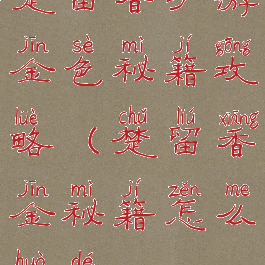 楚留香手游
jīn sè mì jí gōng
金色秘籍攻
lüè chǔ liú xiāng
略(楚留香
jīn mì jí zěn me
金秘籍怎么
huò dé